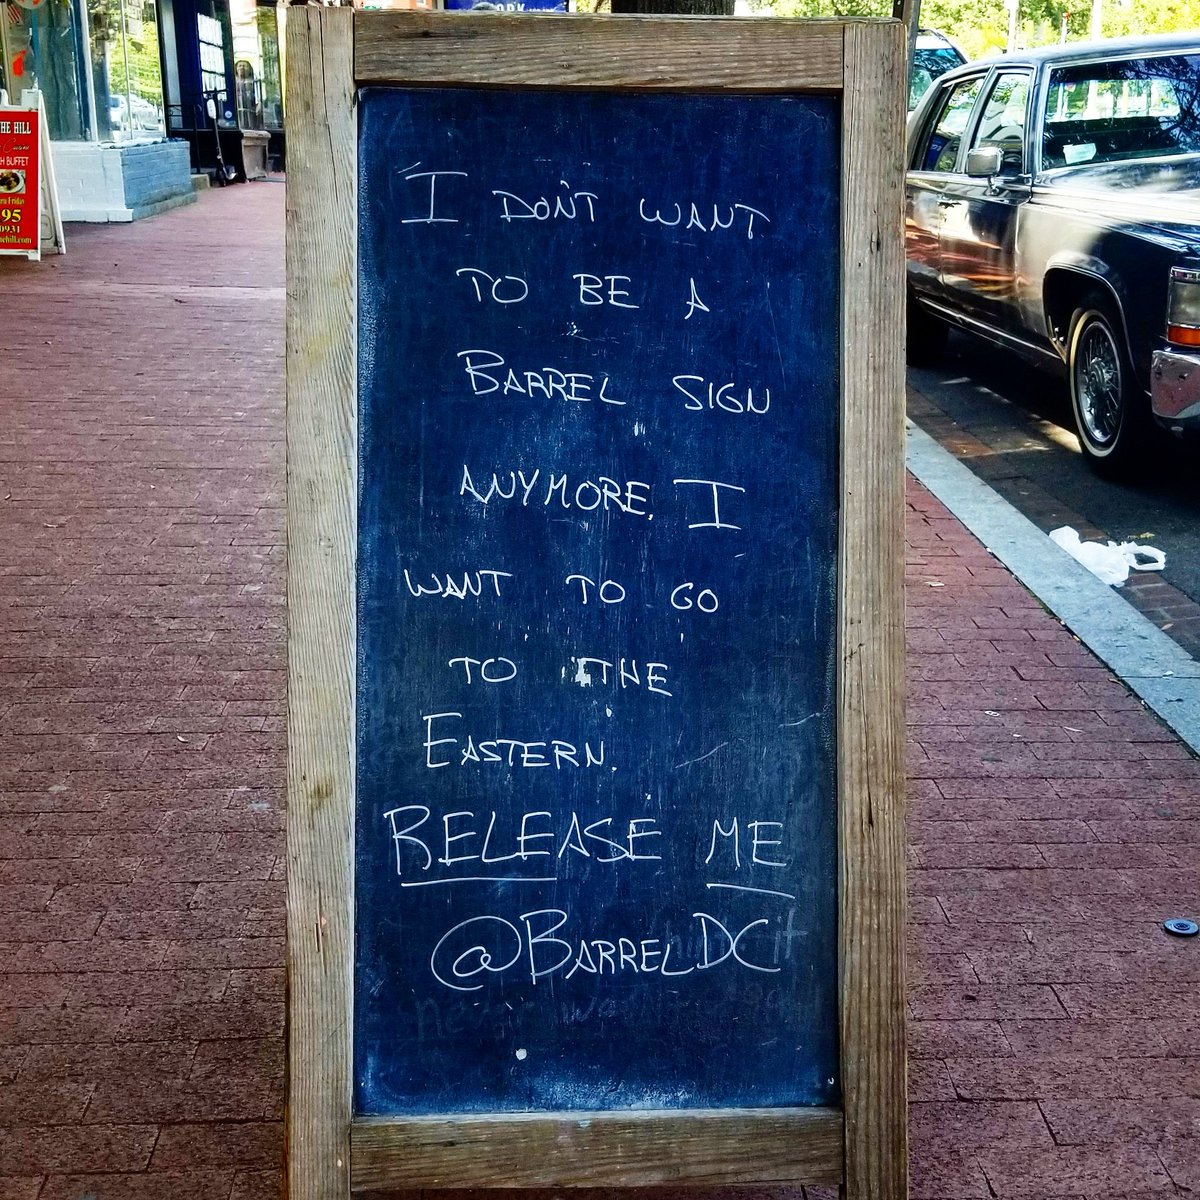 I DON'T WANT
TO BE A
BARREL SIGN
ANYMORE. I
WANT TO GO
TO THE
EASTERN.
RELEASE ME
@BARRELDC
HE HILL
Cuisine
H BUFFET
Friday
95
0931
hehill.com